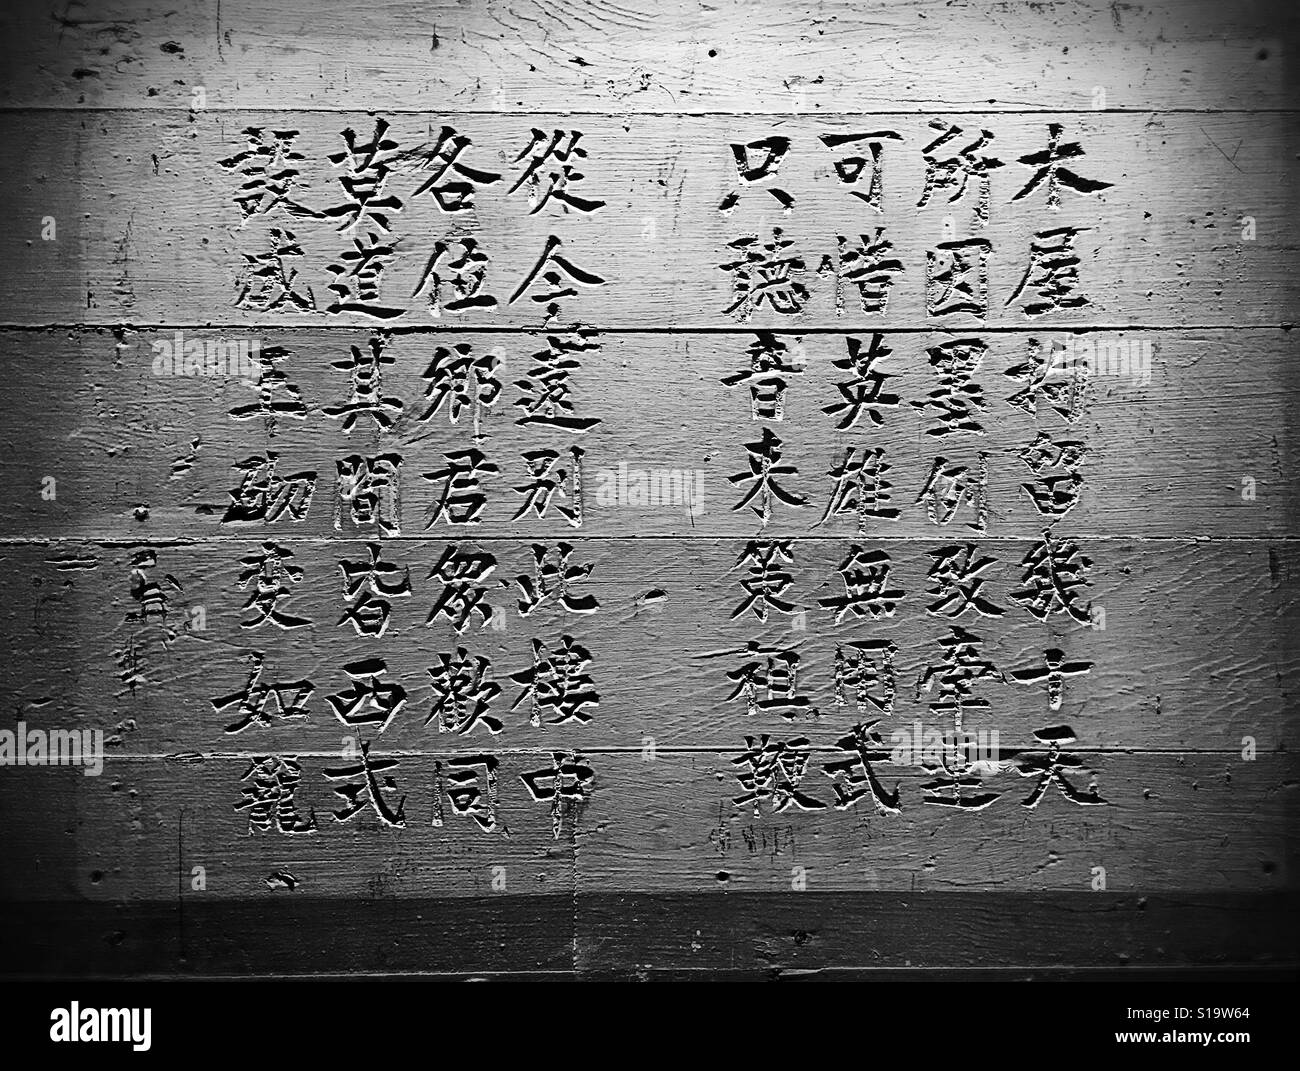 木屋拘留幾十天
所因墨例致牽連
可惜英雄無用武
只聽音來策祖鞭
從今遠別此樓中
各位鄉君眾歡同
莫道其間皆西式
設成玉砌變如籠
alamy
S19W64
www.alamy.com